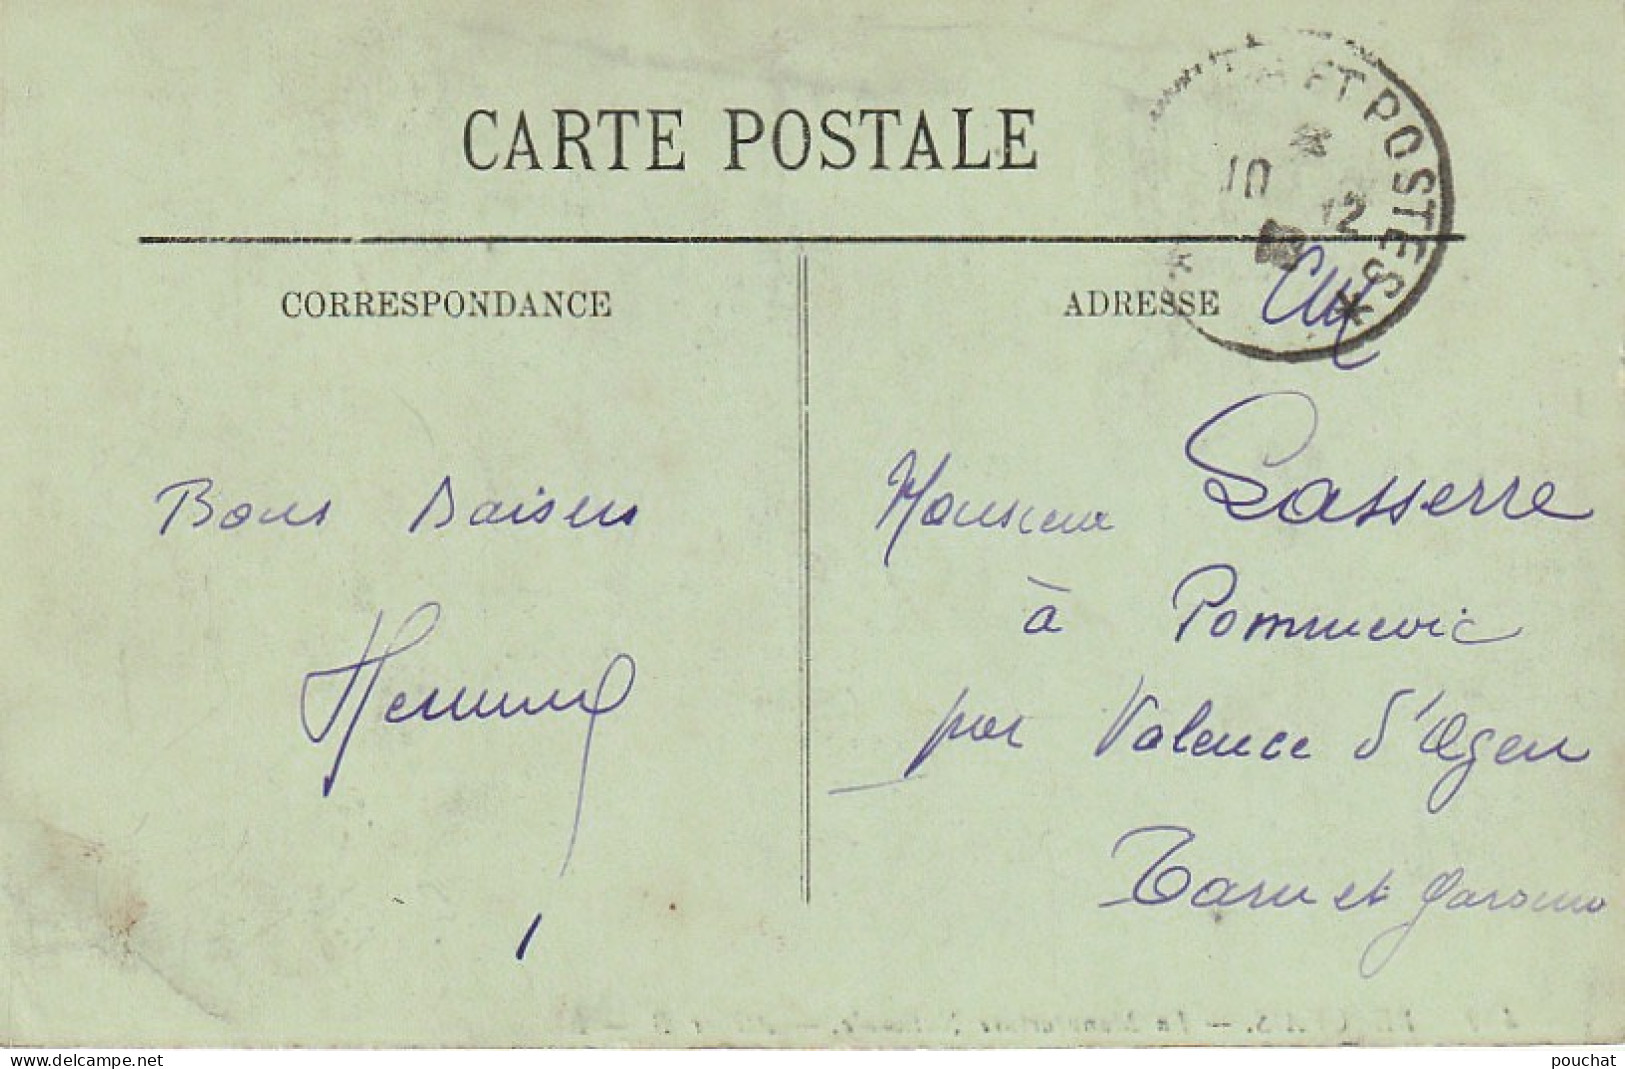 CARTE POSTALE
ET POSTES *
10 12
CORRESPONDANCE
ADRESSE
Bons Baisers
Monsieur Lasserre
à Pommevic
par Valence d'Agen
Tarn et Garonne
delcampe.net
pouchat